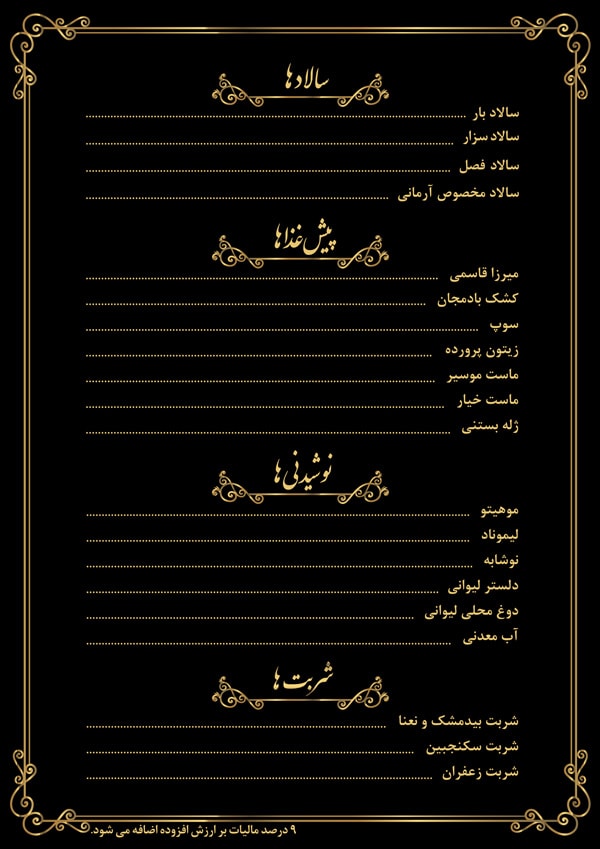 سالادها
سالاد بار
سالاد سزار
سالاد فصل
سالاد مخصوص آرمانی
پیش غذاها
میرزا قاسمی
کشک بادمجان
سوپ
زیتون پرورده
ماست موسیر
ماست خیار
ژله بستنی
نوشیدنی ها
موهیتو
لیموناد
نوشابه
دلستر لیوانی
دوغ محلی لیوانی
آب معدنی
شربت ها
شربت بیدمشک و نعنا
شربت سکنجبین
شربت زعفران
۹ درصد مالیات بر ارزش افزوده اضافه می شود.